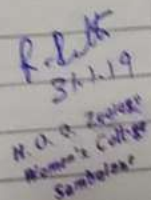 31.1.19
H.O.D Zoology
Women's College
Sambalpur